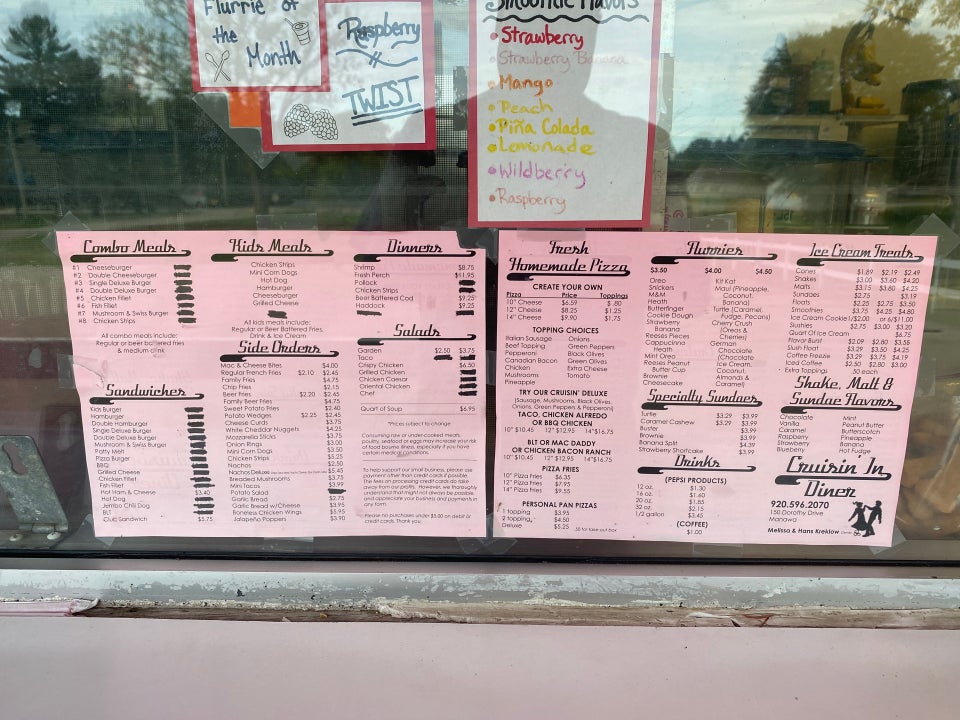 Flurrie of
the
Month
Raspberry
TWIST
Smoothie Flavors
• Strawberry
• Strawberry Banana
• Mango
• Peach
• Piña Colada
• Lemonade
• Wildberry
• Raspberry
Combo Meals
#1 Cheeseburger
#2 Double Cheeseburger
#3 Single Deluxe Burger
#4 Double Deluxe Burger
#5 Chicken Fillet
#6 Fish Fillet
#7 Mushroom & Swiss Burger
#8 Chicken Strips
All combo meals include:
regular or beer battered fries
& medium drink
Sandwiches
Kids Burger
Hamburger
Double Hamburger
Single Deluxe Burger
Double Deluxe Burger
Mushroom & Swiss Burger
Patty Melt
Pizza Burger
BBQ
Grilled Cheese
Chicken Fillet
Fish Fillet
Hot Ham & Cheese $3.40
Hot Dog
Jumbo Chili Dog
BLT
Club Sandwich $5.75
Kids Meals
Chicken Strips
Mini Corn Dogs
Hot Dog
Hamburger
Cheeseburger
Grilled Cheese
All kids meals include:
Regular or Beer Battered Fries,
Drink & Ice Cream
Side Orders
Mac & Cheese Bites $4.00
Regular French Fries $2.10 $2.45
Family Fries $4.75
Chip Fries $2.15
Beer Fries $2.20 $2.45
Family Beer Fries $4.75
Sweet Potato Fries $2.40
Potato Wedges $2.25 $2.45
Cheese Curds $3.75
White Cheddar Nuggets $4.25
Mozzarella Sticks $3.75
Onion Rings $3.00
Mini Corn Dogs $3.50
Chicken Strips $5.25
Nachos $2.50
Nachos Deluxe $5.45
Breaded Mushrooms $3.75
Mini Tacos $3.99
Potato Salad
Garlic Bread $2.75
Garlic Bread w/Cheese $3.95
Boneless Chicken Wings $5.95
Jalapeño Poppers $3.90
Dinners
Shrimp $8.75
Fresh Perch $11.95
Pollock
Chicken Strips
Beer Battered Cod $9.25
Haddock $9.25
Salads
Garden $2.50 $3.75
Taco
Crispy Chicken $6.50
Grilled Chicken
Chicken Caesar
Oriental Chicken
Chef
Quart of Soup $6.95
*Prices subject to change*
Consuming raw or under-cooked meats,
poultry, seafood or eggs may increase your risk
of food bourne illness, especially if you have
certain medical conditions.
To help support our small business, please use
payment other than credit cards if possible.
The fees on processing credit cards do take
away from our profits. However, we thoroughly
understand that might not always be possible,
and appreciate your business and payments in
any form.
Please no purchases under $5.00 on debit or
credit cards. Thank you.
Fresh
Homemade Pizza
CREATE YOUR OWN
Pizza Price Toppings
10" Cheese $6.59 $ .80
12" Cheese $8.25 $1.25
14" Cheese $9.90 $1.75
TOPPING CHOICES
Italian Sausage Onions
Beef Topping Green Peppers
Pepperoni Black Olives
Canadian Bacon Green Olives
Chicken Extra Cheese
Mushrooms Tomato
Pineapple
TRY OUR CRUISIN' DELUXE
(Sausage, Mushrooms, Black Olives,
Onions, Green Peppers & Pepperoni)
TACO, CHICKEN ALFREDO
OR BBQ CHICKEN
10" $10.45 12" $12.95 14"$16.75
BLT OR MAC DADDY
OR CHICKEN BACON RANCH
10" $10.45 12" $12.95 14"$16.75
PIZZA FRIES
10" Pizza Fries $6.35
12" Pizza Fries $7.95
14" Pizza Fries $9.55
PERSONAL PAN PIZZAS
1 topping $3.95
2 topping $4.50
Deluxe $5.25
.50 for take out box
Flurries
$3.50 $4.00 $4.50
Oreo
Snickers
M&M
Heath
Butterfinger
Cookie Dough
Strawberry
Banana
Reeses Pieces
Cappuccino
Heath
Mint Oreo
Reeses Peanut
Butter Cup
Brownie
Cheesecake
Kit Kat
Maui (Pineapple,
Coconut,
Banana)
Turtle (Caramel,
Fudge, Pecans)
Cherry Crush
(Oreos &
Cherries)
German
Chocolate
(Chocolate
Ice Cream,
Coconut,
Almonds &
Caramel)
Specialty Sundaes
Turtle $3.29 $3.99
Caramel Cashew $3.29 $3.99
Buster $3.99
Brownie $3.99
Banana Split $4.39
Strawberry Shortcake $3.99
Drinks
(PEPSI PRODUCTS)
12 oz. $1.30
16 oz. $1.60
20 oz. $1.85
32 oz. $2.15
1/2 gallon $3.45
(COFFEE)
$1.00
Ice Cream Treats
Cones $1.89 $2.19 $2.49
Shakes $3.00 $3.60 $4.20
Malts $3.15 $3.80 $4.25
Sundaes $2.75 $3.19
Floats $2.25 $2.75 $3.50
Smoothies $3.75 $4.25 $4.80
Ice Cream Cookie1/$2.00 or 6/$11.00
Slushies $2.75 $3.00 $3.20
Quart Of Ice Cream $6.75
Flavor Burst $2.09 $2.80 $3.58
Slush Float $3.29 $3.50 $4.25
Coffee Freezie $3.29 $3.75 $4.19
Iced Coffee $2.50 $2.80 $3.00
Extra Toppings .50 each
Shake, Malt &
Sundae Flavors
Chocolate Mint
Vanilla Peanut Butter
Caramel Butterscotch
Raspberry Pineapple
Strawberry Banana
Blueberry Hot Fudge
Cruisin' In
Diner
920.596.2070
150 Dorothy Drive
Manawa
Melissa & Hans Kreklow Owners